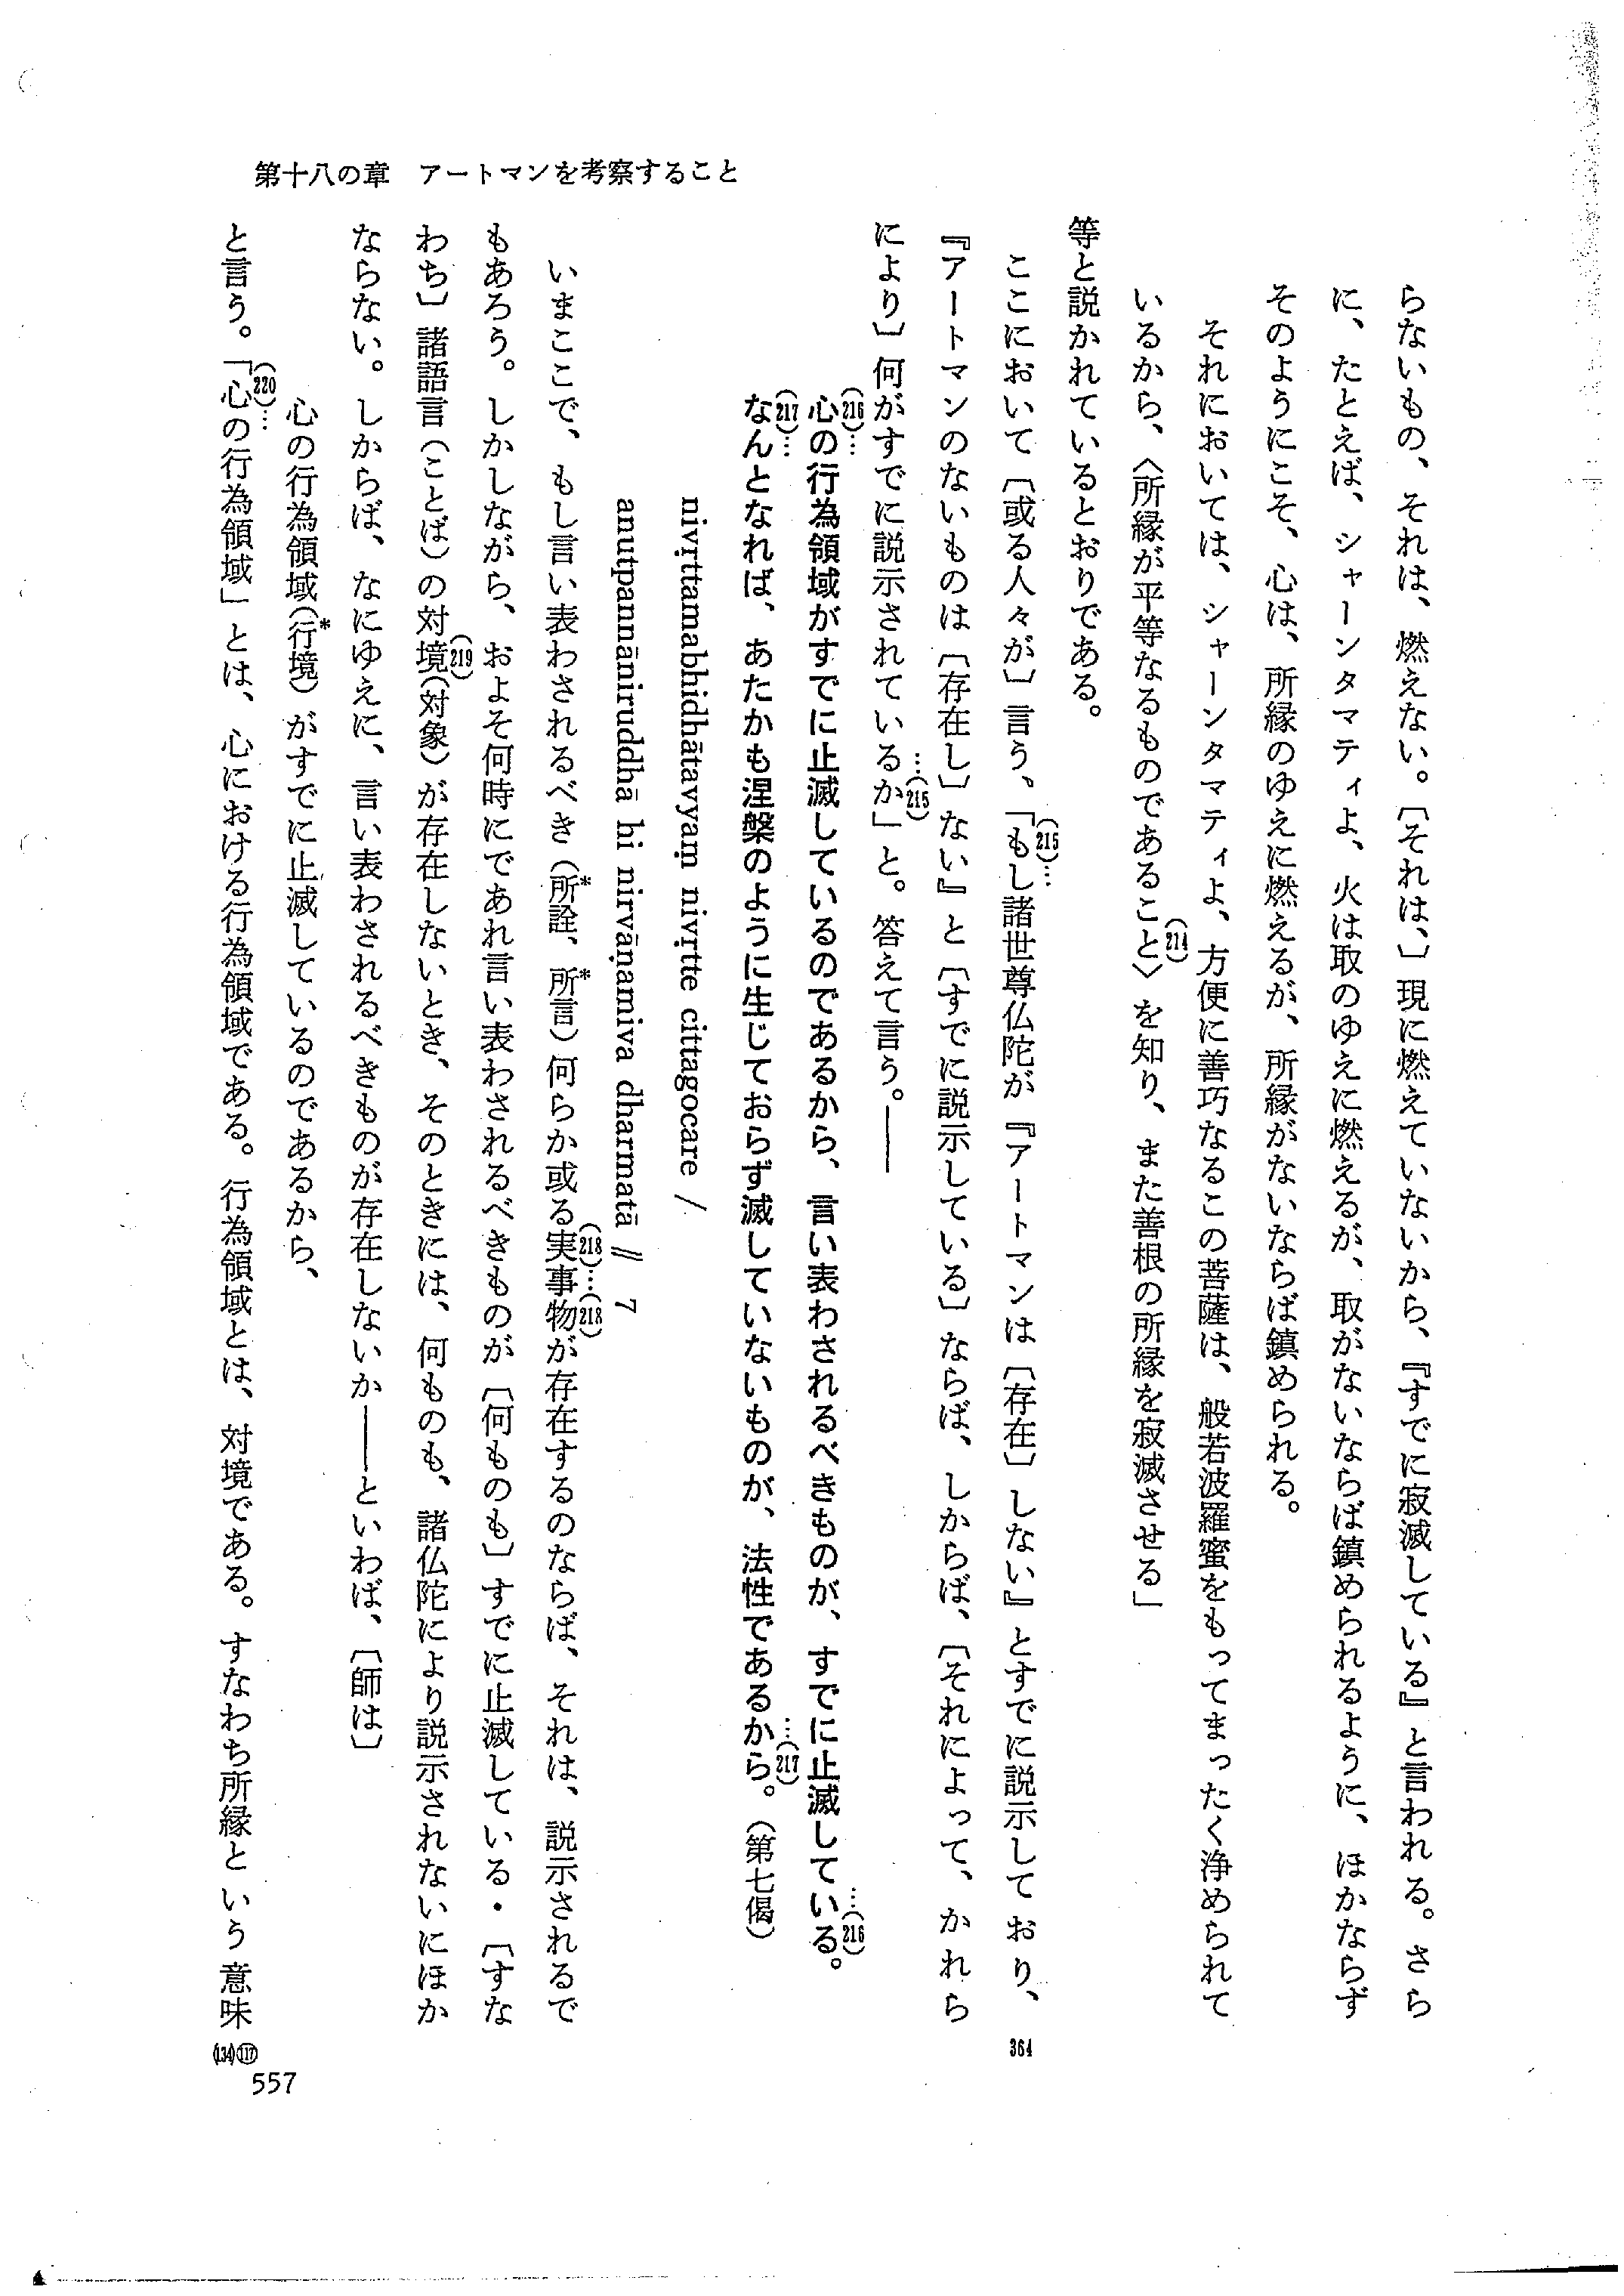 第十八の章　アートマンを考察すること
らないもの、それは、燃えない。〔それは、〕現に燃えていないから、『すでに寂滅している』と言われる。さら
に、たとえば、シャーンタマティよ、火は取のゆえに燃えるが、取がないならば鎮められるように、ほかならず
そのようにこそ、心は、所縁のゆえに燃えるが、所縁がないならば鎮められる。
それにおいては、シャーンタマティよ、方便に善巧なるこの菩薩は、般若波羅蜜をもってまったく浄められて
いるから、〈所縁が平等なるものであること〉(214)を知り、また善根の所縁を寂滅させる」
等と説かれているとおりである。
ここにおいて〔或る人々が〕言う、「(215)…もし諸世尊仏陀が『アートマンは〔存在〕しない』とすでに説示しており、
『アートマンのないものは〔存在し〕ない』と〔すでに説示している〕ならば、しからば、〔それによって、かれら
により〕何がすでに説示されているか…(215)」と。答えて言う。――
(216)…心の行為領域がすでに止滅しているのであるから、言い表わされるべきものが、すでに止滅している。…(216)
(217)…なんとなれば、あたかも涅槃のように生じておらず滅していないものが、法性であるから。…(217)（第七偈）
nivṛttamabhidhātavyaṃ nivṛtte cittagocare /
anutpannāniruddhā hi nirvāṇamiva dharmatā // 7
いまここで、もし言い表わされるべき（所詮*、所言*）何らか或る(218)…実事物…(218)が存在するのならば、それは、説示されるで
もあろう。しかしながら、およそ何時にであれ言い表わされるべきものが〔何ものも〕すでに止滅している・〔すな
わち〕諸語言（ことば）の対境(219)（対象）が存在しないとき、そのときには、何ものも、諸仏陀により説示されないにほか
ならない。しからば、なにゆえに、言い表わされるべきものが存在しないか――といわば、〔師は〕
心の行為領域（行*境）がすでに止滅しているのであるから、
と言う。「(220)…心の行為領域」とは、心における行為領域である。行為領域とは、対境である。すなわち所縁という意味
364
(134)⑰
557